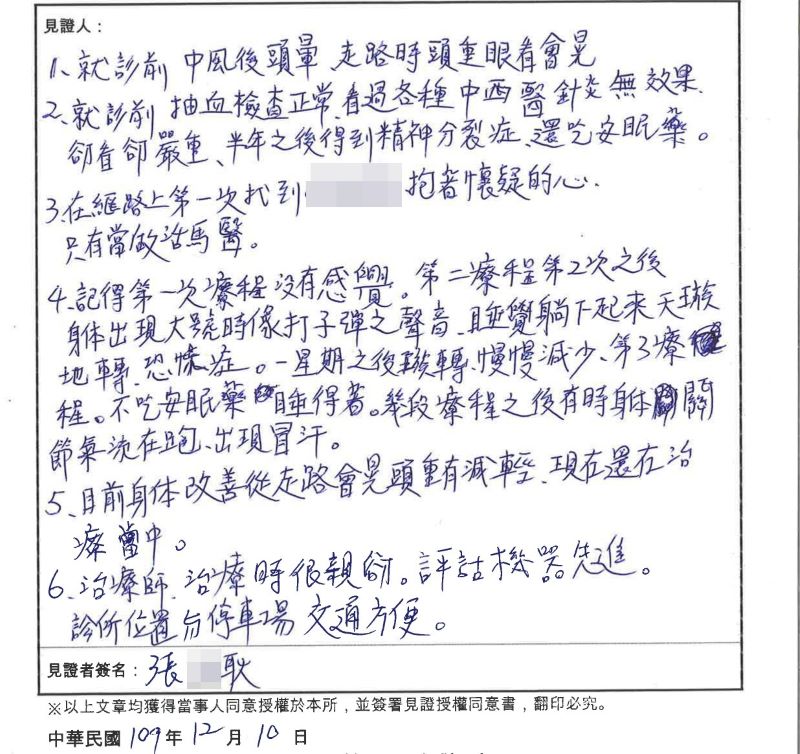 見證人：
1、就診前 中風後頭暈、走路時頭重眼看會晃
2、就診前 抽血檢查正常、看過各種中西醫針灸無效果、
卻看卻嚴重、半年之後得到精神分裂症、還吃安眠藥。
3、在網路上第一次找到 抱著懷疑的心、
只有當做活馬醫。
4、記得第一次療程沒有感覺。第二療程第2次之後
身体出現大號時像打子彈之聲音、睡覺躺下起來天璇
地轉、恐怖症。一星期之後璇轉、慢慢減少、第3療
程。不吃安眠藥 睡得著。幾段療程之後有時身体 關
節氣流在跑、出現冒汗。
5、目前身体改善從走路會晃頭重有減輕、現在還在治
療當中。
6、治療師、治療時很親 。評估機器先進。
診所位置 停車場 交通方便。
見證者簽名：張 耿
※以上文章均獲得當事人同意授權於本所，並簽署見證授權同意書，翻印必究。
中華民國 109 年 12 月 10 日